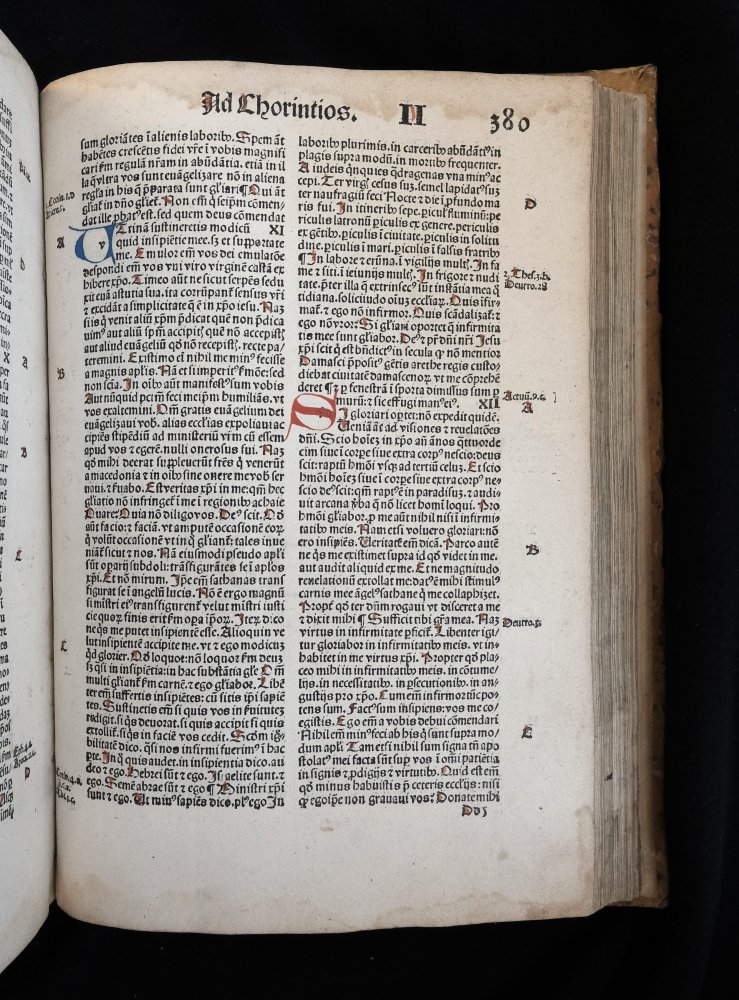 Ad Chorintios. II 380
sum gloriātes ī alienis laborib⁹. Spem āt
habētes crescētis fidei vr̄e ī vobis magnifi
cari ẜm regulā nr̄am in abūdātia. etiā in il
la q̄ vltra vos sunt euāgelizare nō in aliena
regl̄a in his q̄ p̄parata sunt gl̄iari ¶ Qui āt
gl̄iat᷑ in dn̄o gl̄iet᷑. Non em̄ q̄ seip̄m cōmen-
dat ille ꝓbat⁹ est. sed quem deus cōmendat
A
VTinā sustineretis modicū XI
quid insipiētie mee. sꝫ et supportate
me. Emulor em̄ vos dei emulatōe
despondi em̄ vos vni viro virginē castā ex
hibere xp̄o. Timeo aūt ne sicut serpēs sedu
xit euā astutia sua. ita corrūpant᷑ sensus vr̄i
⁊ excidāt a simplicitate q̄ ē in xp̄o iesu. Naꝫ
si is q̄ venit aliū xp̄m p̄dicat quē non p̄dica
uim⁹ aut aliū sp̄m accipit
aut aliud euāgeliū qd̄ nō recepist
teremini. Existimo em̄ nihil me min⁹ fecisse
B
a magnis aplīs. Nā et si imperit⁹ ẜmōe: sed
non scīa. In oīb⁹ aūt manifest⁹ sum vobis
Aut nūquid pctm̄ feci meip̄m humiliās. vt
vos exaltemini. Qm̄ gratis euāgelium dei
euāgelizaui vob. alias ecclīas expoliaui ac
cipiēs stipēdiū ad ministeriū vr̄m cū essem
apud vos ⁊ egerē. nulli onerosus fui. Naꝫ
qd̄ mihi deerat suppleuerūt fr̄es q̄ venerūt
a macedonia ⁊ in oīb⁹ sine onere me vob ser
naui. ⁊ ẜuabo. Est veritas xp̄i in me: qm̄ hec
gl̄iatio nō infringet᷑ ī me ī regionib⁹ achaie
Quare: Quia nō diligo vos. De⁹ scit. Qd̄
aūt facio: ⁊ faciā. vt amputē occasionē eoꝝ
q̄ volūt occasionē vt in q̄ gl̄iant᷑. tales inue
niāt᷑ sicut ⁊ nos. Nā eiusmodi pseudo apl̄i
sūt oparij subdoli: trāsfigurātes se ī aplos
xp̄i. Et nō mirum. Ip̄e em̄ sathanas trans
figurat se ī angelū lucis. Nō ē ergo magnū
si mīstri ei⁹ trāsfigurent᷑ velut mīstri iusti
cie quoꝝ finis erit ẜm opa ip̄oꝝ. Iteꝝ dico
ne q̄s me putet insipientē esse. Alioquin ve
C
lut insipientē accipite me. vt ⁊ ego modicuꝫ
qd̄ glorier. Qd̄ loquor: nō loquor ẜm deuꝫ
sꝫ q̄si in insipiētia: in hac substātia gl̄e Qm̄
multi gl̄iant᷑ ẜm carnē. ⁊ ego gl̄iabor. Libē
ter em̄ suffertis insipiētes: cū sitis ip̄i sapiē
tes. Sustinetis em̄ si quis vos in ẜuituteꝫ
redigit. si q̄s deuorat. si quis accipit si quis
extollit᷑. si q̄s in faciē vos cedit. Scd̄m ig-
bilitatē dico. q̄si nos infirmi fuerim⁹ ī hac
pte. In q̄ quis audet. in insipientia dico. au
deo ⁊ ego. Hebrei sūt ⁊ ego. Israelite sunt. ⁊
ego. Semē abrae sūt ⁊ ego ¶ Ministri xp̄i
sunt ⁊ ego. Ut min⁹ sapiēs dico. pl⁹ ego In
laborib⁹ plurimis. in carcerib⁹ abūdāti⁹ in
plagis supra modū. in mortib⁹ frequenter.
A iudeis q̄nquies q̄dragenas vna min⁹ ac
cepi. Ter virgl̄ cesus suꝫ. semel lapidat⁹ suꝫ
ter naufragiū feci Nocte ⁊ die ī ꝓfundo ma
D
ris fui. In itinerib⁹ sepe. picul̄ fluminū: pe
riculis latronū piculis ex genere. periculis
ex gētib⁹. piculis ī ciuitate. piculis in solitu
dine. piculis ī mari. piculis ī falsis fratrib⁹
¶ In labore ⁊ erūna. ī vigilijs mult
me ⁊ siti. ī ieiunijs mult
2. Thes. 3. b.
tate. p̄ter illa q̄ extrinsec⁹ sūt instātia mea q̄
Deutro. 28
tidiana. soliciuudo oīuꝫ eccl̄iaꝝ. Quis īfir-
mat᷑. ⁊ ego nō infirmor. Quis scādalizat᷑: ⁊
ego nō vror: Si gl̄iari oportet q̄ infirmita
tis mee sunt gl̄iabor. De⁹ ⁊ p̄r dn̄i nr̄i Jesu
xp̄i scit q̄ est bn̄dict⁹ in secula q̄ nō mentior
Damasci p̄posit⁹ gētis arethe regis custo-
diebat ciuitatē damascenoꝝ vt me cōprehē
deret ¶ ⁊ ꝑ fenestrā ī sporta dimissus sum ꝑ
murū: ⁊ sic effugi man⁹ ei⁹. XII
Actuū. 9. c.
A
SI gloriari oꝫtet: nō expedit quidē.
Ueniā āt ad visiones ⁊ reuelatōes
dn̄i. Scio hoīeꝫ in xp̄o an̄ ānos q̄ttuorde
cim siue ī corpe siue extra corp⁹ nescio: deus
scit: raptū hm̄oi vsqꝫ ad tertiū celuꝫ. Et scio
hm̄oi hoīeꝫ siue ī corpe siue extra corp⁹ ne-
scio de⁹ scit: qm̄ rapt⁹ ē in paradisuꝫ. ⁊ audi-
uit arcana ꝟba q̄ nō licet homī loqui. Pro
hm̄oi gl̄iabor. ꝓ me aūt nihil nisi ī infirmi-
tatib⁹ meis. Nam etsi voluero gloriari: nō
ero insipiēs. Ueritatē em̄ dicā. Parco autē
B
ne q̄s me existimet supra id qd̄ videt in me.
aut audit aliquid ex me. Et ne magnitudo
reuelationū extollat me: dat⁹ ē mihi stimul⁹
carnis mee āgel⁹ sathane q̄ me collaphizet.
Propt̄ qd̄ ter dn̄m rogaui vt discederet a me
⁊ dixit mihi ¶ Sufficit tibi gr̄a mea. Naꝫ
Deutro. 3.
virtus in infirmitate ꝑficit᷑. Libenter igi-
tur gloriabor in infirmitatib⁹ meis. vt in-
habitet in me virtus xp̄i. Propter qd̄ pla-
ceo mihi in infirmitatib⁹ meis. in cōtume/
lijs. in necessitatib⁹. in ꝑsecutionib⁹. in an-
gustijs pro xp̄o. Cum em̄ infirmor tūc po-
tens sum. Fact⁹ sum insipiens: vos me co/
egistis. Ego em̄ a vobis debui cōmendari
Nihil em̄ min⁹ feci ab his q̄ sunt supra mo/
C
dum apl̄i Tametsi nihil sum signa tn̄ apo
stolat⁹ mei facta sūt suꝑ vos ī omi patiētia
in signis ⁊ ꝓdigijs ⁊ virtutib⁹. Quid est em̄
qd̄ minus habuistis p̄ ceteris eccl̄ijs: nisi
q̄ ego ip̄e non grauaui vos: Donate mihi
Dd 1